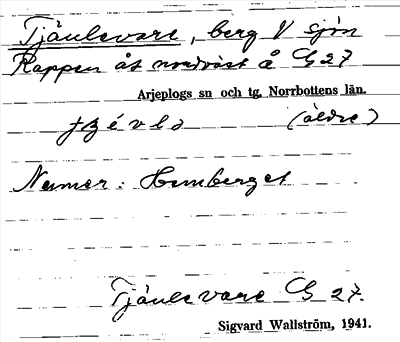 Tjäulsvare, berg V sjön
Rappen åt nordväst å G 27
Arjeplogs sn och tg, Norrbottens län.
(äldre)
Numer: Hemberget
Tjäulsvare G 27.
Sigvard Wallström, 1941.